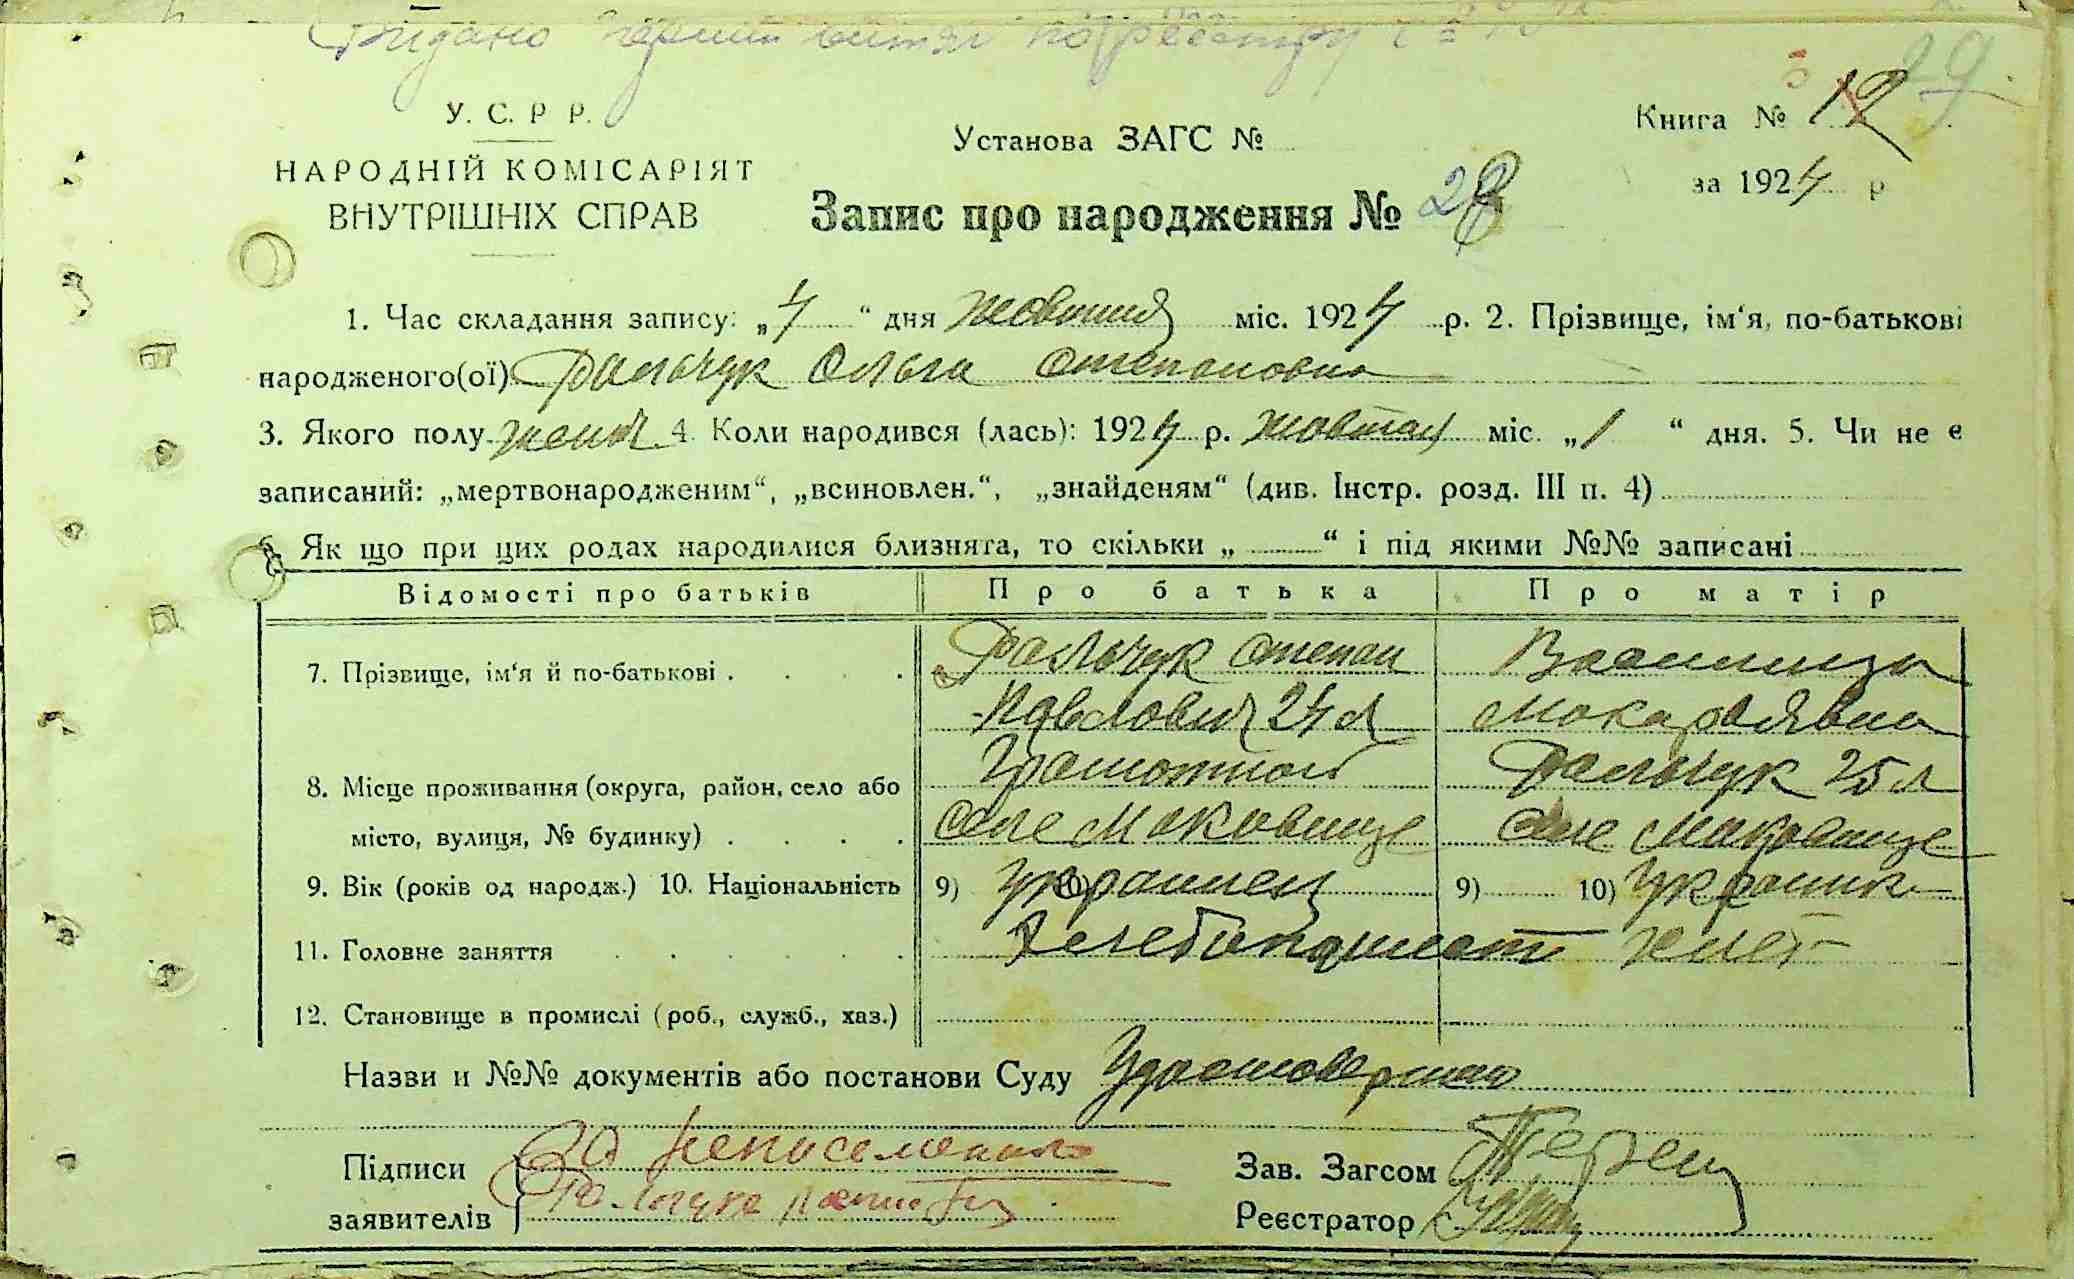 Видано по реєстру
29
У. С. Р Р.
Книга № 12
Установа ЗАГС №
НАРОДНІЙ КОМІСАРІЯТ
за 1924 р
ВНУТРІШНІХ СПРАВ
Запис про народження № 28
1. Час складання запису: „4“ дня жовтня міс. 1924 р. 2. Прізвище, ім‘я, по-батькові
народженого(ої) Дальчук Ольга Степановна
3. Якого полу женск 4. Коли народився (лась): 1924 р. жовтня міс. „1“ дня. 5. Чи не є
записаний: „мертвонародженим“, „всиновлен.“, „знайденям“ (див. Інстр. розд. III п. 4)
6. Як що при цих родах народилися близнята, то скільки „ “ і під якими №№ записані
Відомості про батьків Про батька Про матір
7. Прізвище, ім‘я й по-батькові . . . . Дальчук Степан Василиса
Павлович 24 л Макарьявна
Грамотный Дальчук 25 л
8. Місце проживання (округа, район, село або
місто, вулиця, № будинку) . . . . Селе Маковище Селе Маковище
9. Вік (років од народж.) 10. Національність 9) 10) Украинец 9) 10) Украинк
11. Головне заняття . . . . . Хлебопашест
12. Становище в промислі (роб., служб., хаз.)
Назви и №№ документів або постанови Суду
Підписи За неписеменого
Зав. Загсом
заявителів Дальчука
Реєстратор